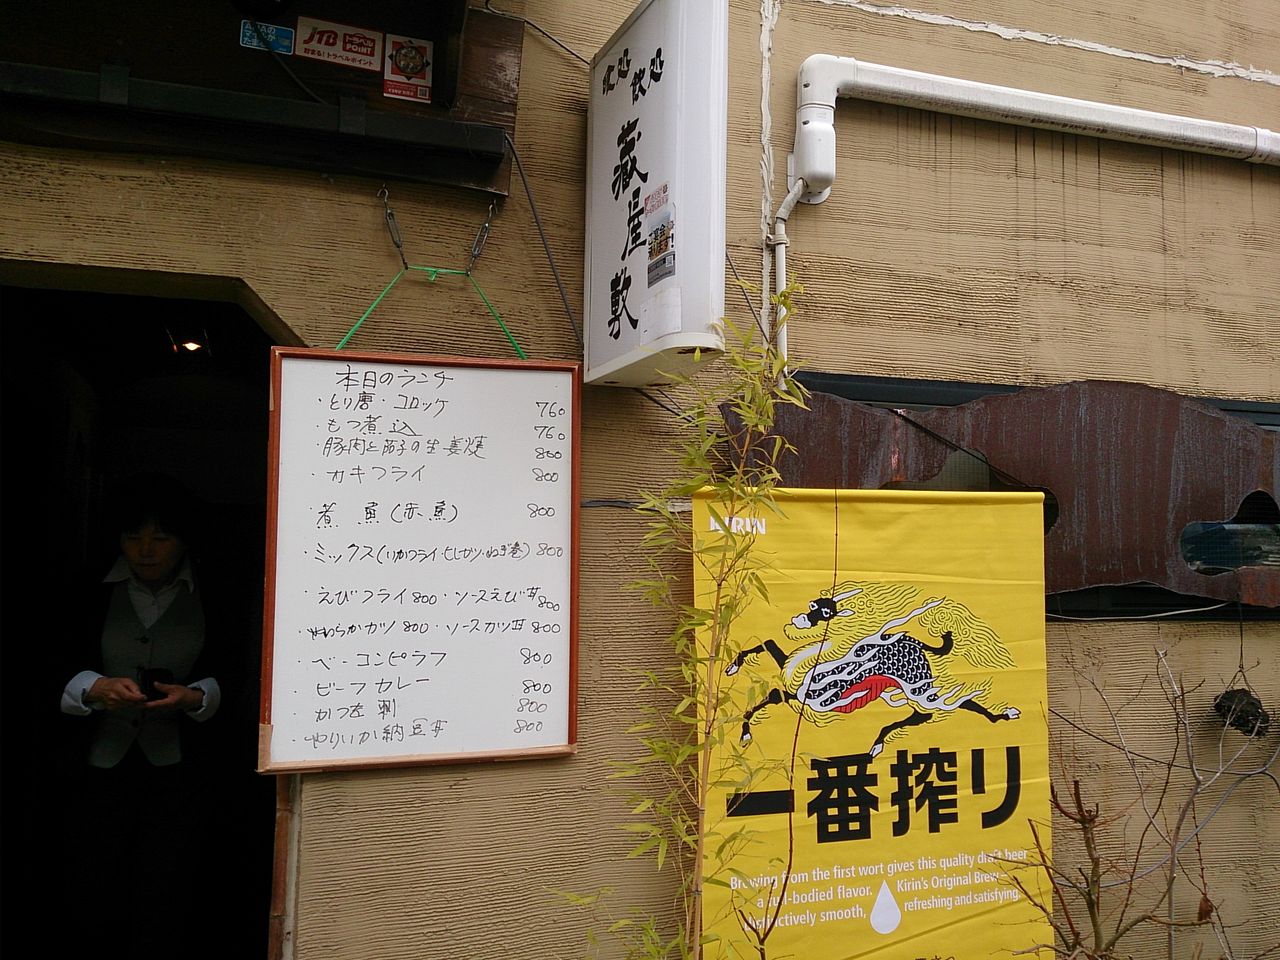 ANAの
マイルが
JTB トラベル
POINT
貯まる!トラベルポイント
食処
飲処
蔵屋敷
本日のランチ
・とり唐・コロッケ 760
・もつ煮込 760
・豚肉と茄子の生姜焼 800
・カキフライ 800
・煮魚(赤魚) 800
・ミックス(いかフライ・ヒレカツ・ねぎ巻) 800
・えびフライ 800・ソースえび丼 800
・やわらかカツ 800・ソースカツ丼 800
・ベーコンピラフ 800
・ビーフカレー 800
・かつを刺 800
・やりいか納豆丼 800
KIRIN
一番搾り
Brewing from the first wort gives this quality draft beer
a full-bodied flavor. Kirin's Original Brew—
distinctively smooth, refreshing and satisfying.